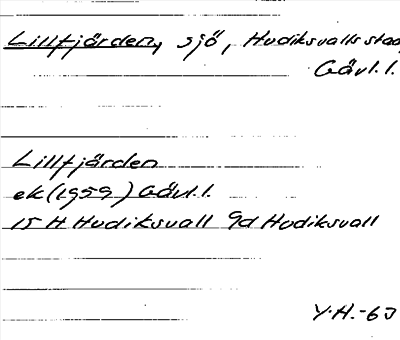 Lillfjärden, sjö, Hudiksvalls stad,
Gävl.l.
Lillfjärden
ek (1959) Gävl.l.
15 H Hudiksvall 9d Hudiksvall
Y.H.-63